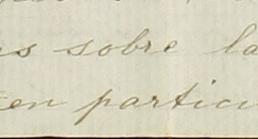 s sobre la
en particu